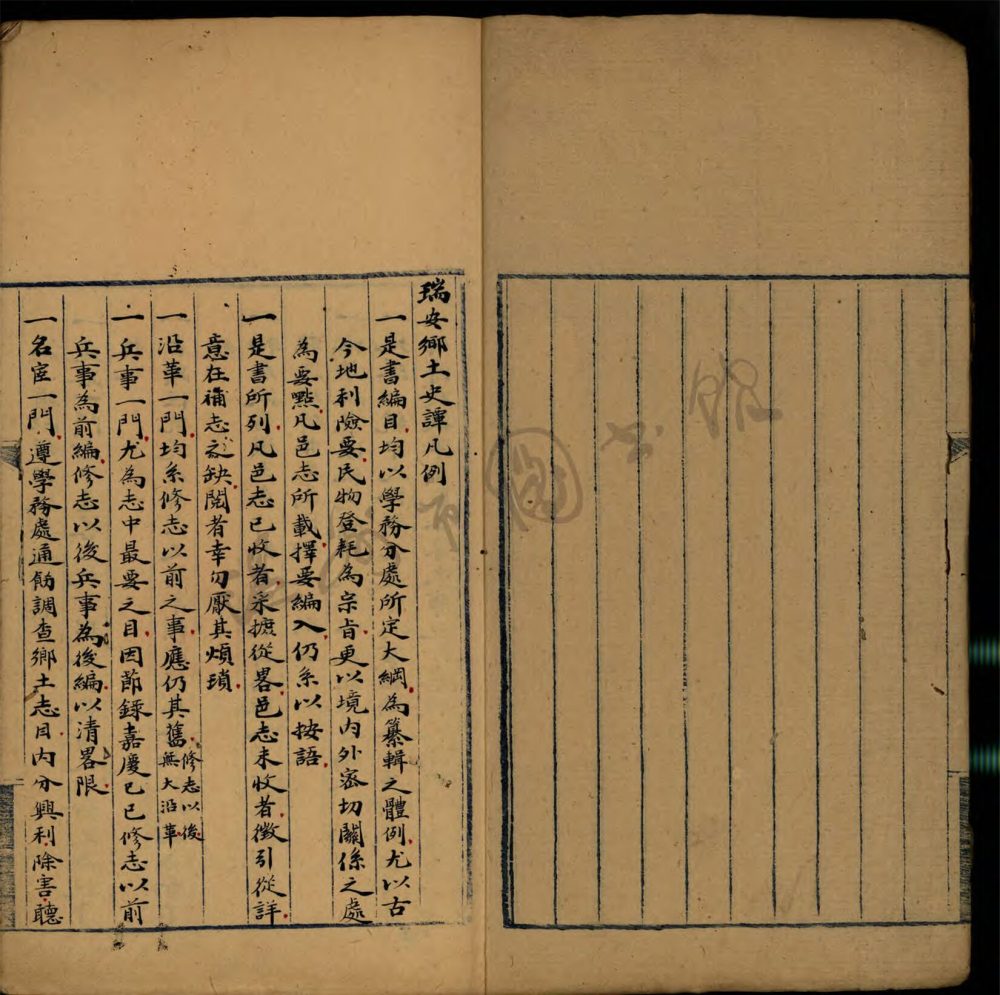 瑞安鄉土史譚凡例
一是書編目均以學務分處所定大綱為纂輯之體例尤以古
今地利險要民物登耗為宗旨更以境內外密切關係之處
為要點凡邑志所載擇要編入仍系以按語
一是書所列凡邑志已收者采摭從畧邑志未收者徵引從詳
意在補志之缺閱者幸勿厭其煩瑣
一沿革一門均系修志以前之事應仍其舊修志以後無大沿革
一兵事一門尤為志中最要之目因節錄嘉慶己巳修志以前
兵事為前編修志以後兵事為後編以清畧限
一名宦一門遵學務處通飭調查鄉土志目內分興利除害聽
圖書館